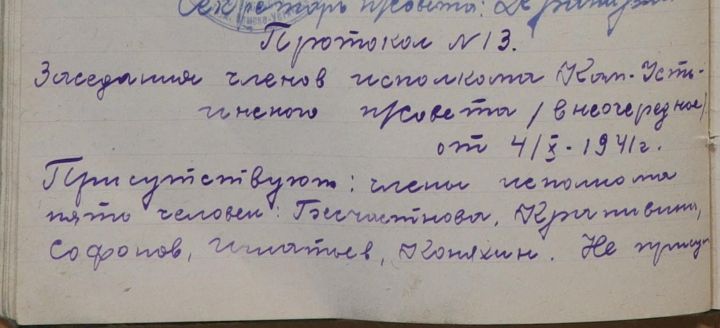 Секретарь п/совета:
Протокол № 13.
Заседания членов исполкома Кам-Усть-
инского п/совета /внеочередное/
от 4/X-1941г.
Присутствуют: члены исполкома
пять человек: Бесчастнова, Крапивин,
Софонов, Игнатьев, Конякин. Не